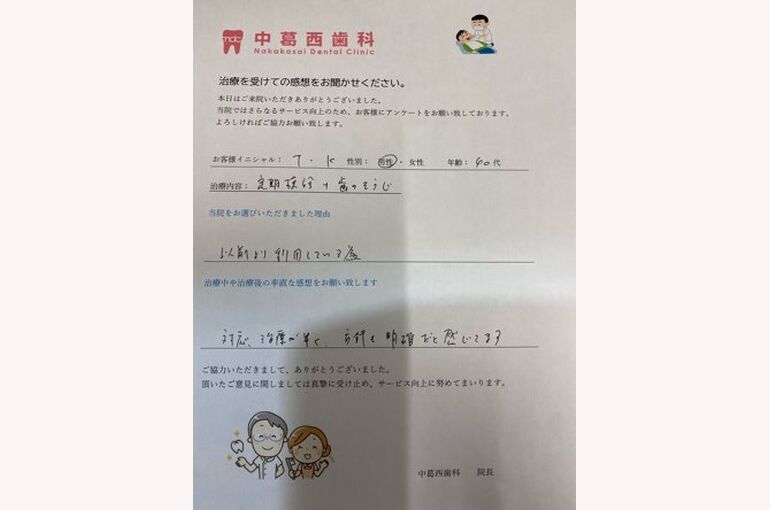 mdc 中葛西歯科
Nakakasai Dental Clinic
治療を受けての感想をお聞かせください。
本日はご来院いただきありがとうございました。
当院ではさらなるサービス向上のため、お客様にアンケートをお願い致しております。
よろしければご協力お願い致します。
お客様イニシャル： T・K 性別： 男性・女性 年齢： 40代
治療内容： 定期検診+歯のそうじ
当院をお選びいただきました理由
以前より利用している為
治療中や治療後の率直な感想をお願い致します
対応、治療が早く、方針も明確だと感じてます
ご協力いただきまして、ありがとうございました。
頂いたご意見に関しましては真摯に受け止め、サービス向上に努めてまいります。
中葛西歯科 院長